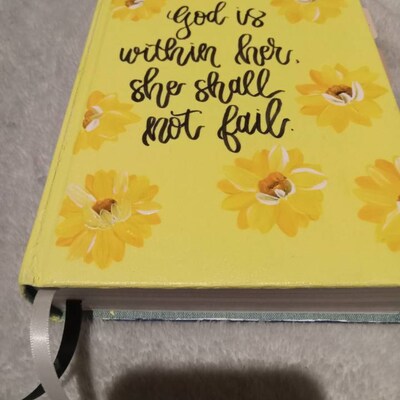 God is
within her,
she shall
not fail.